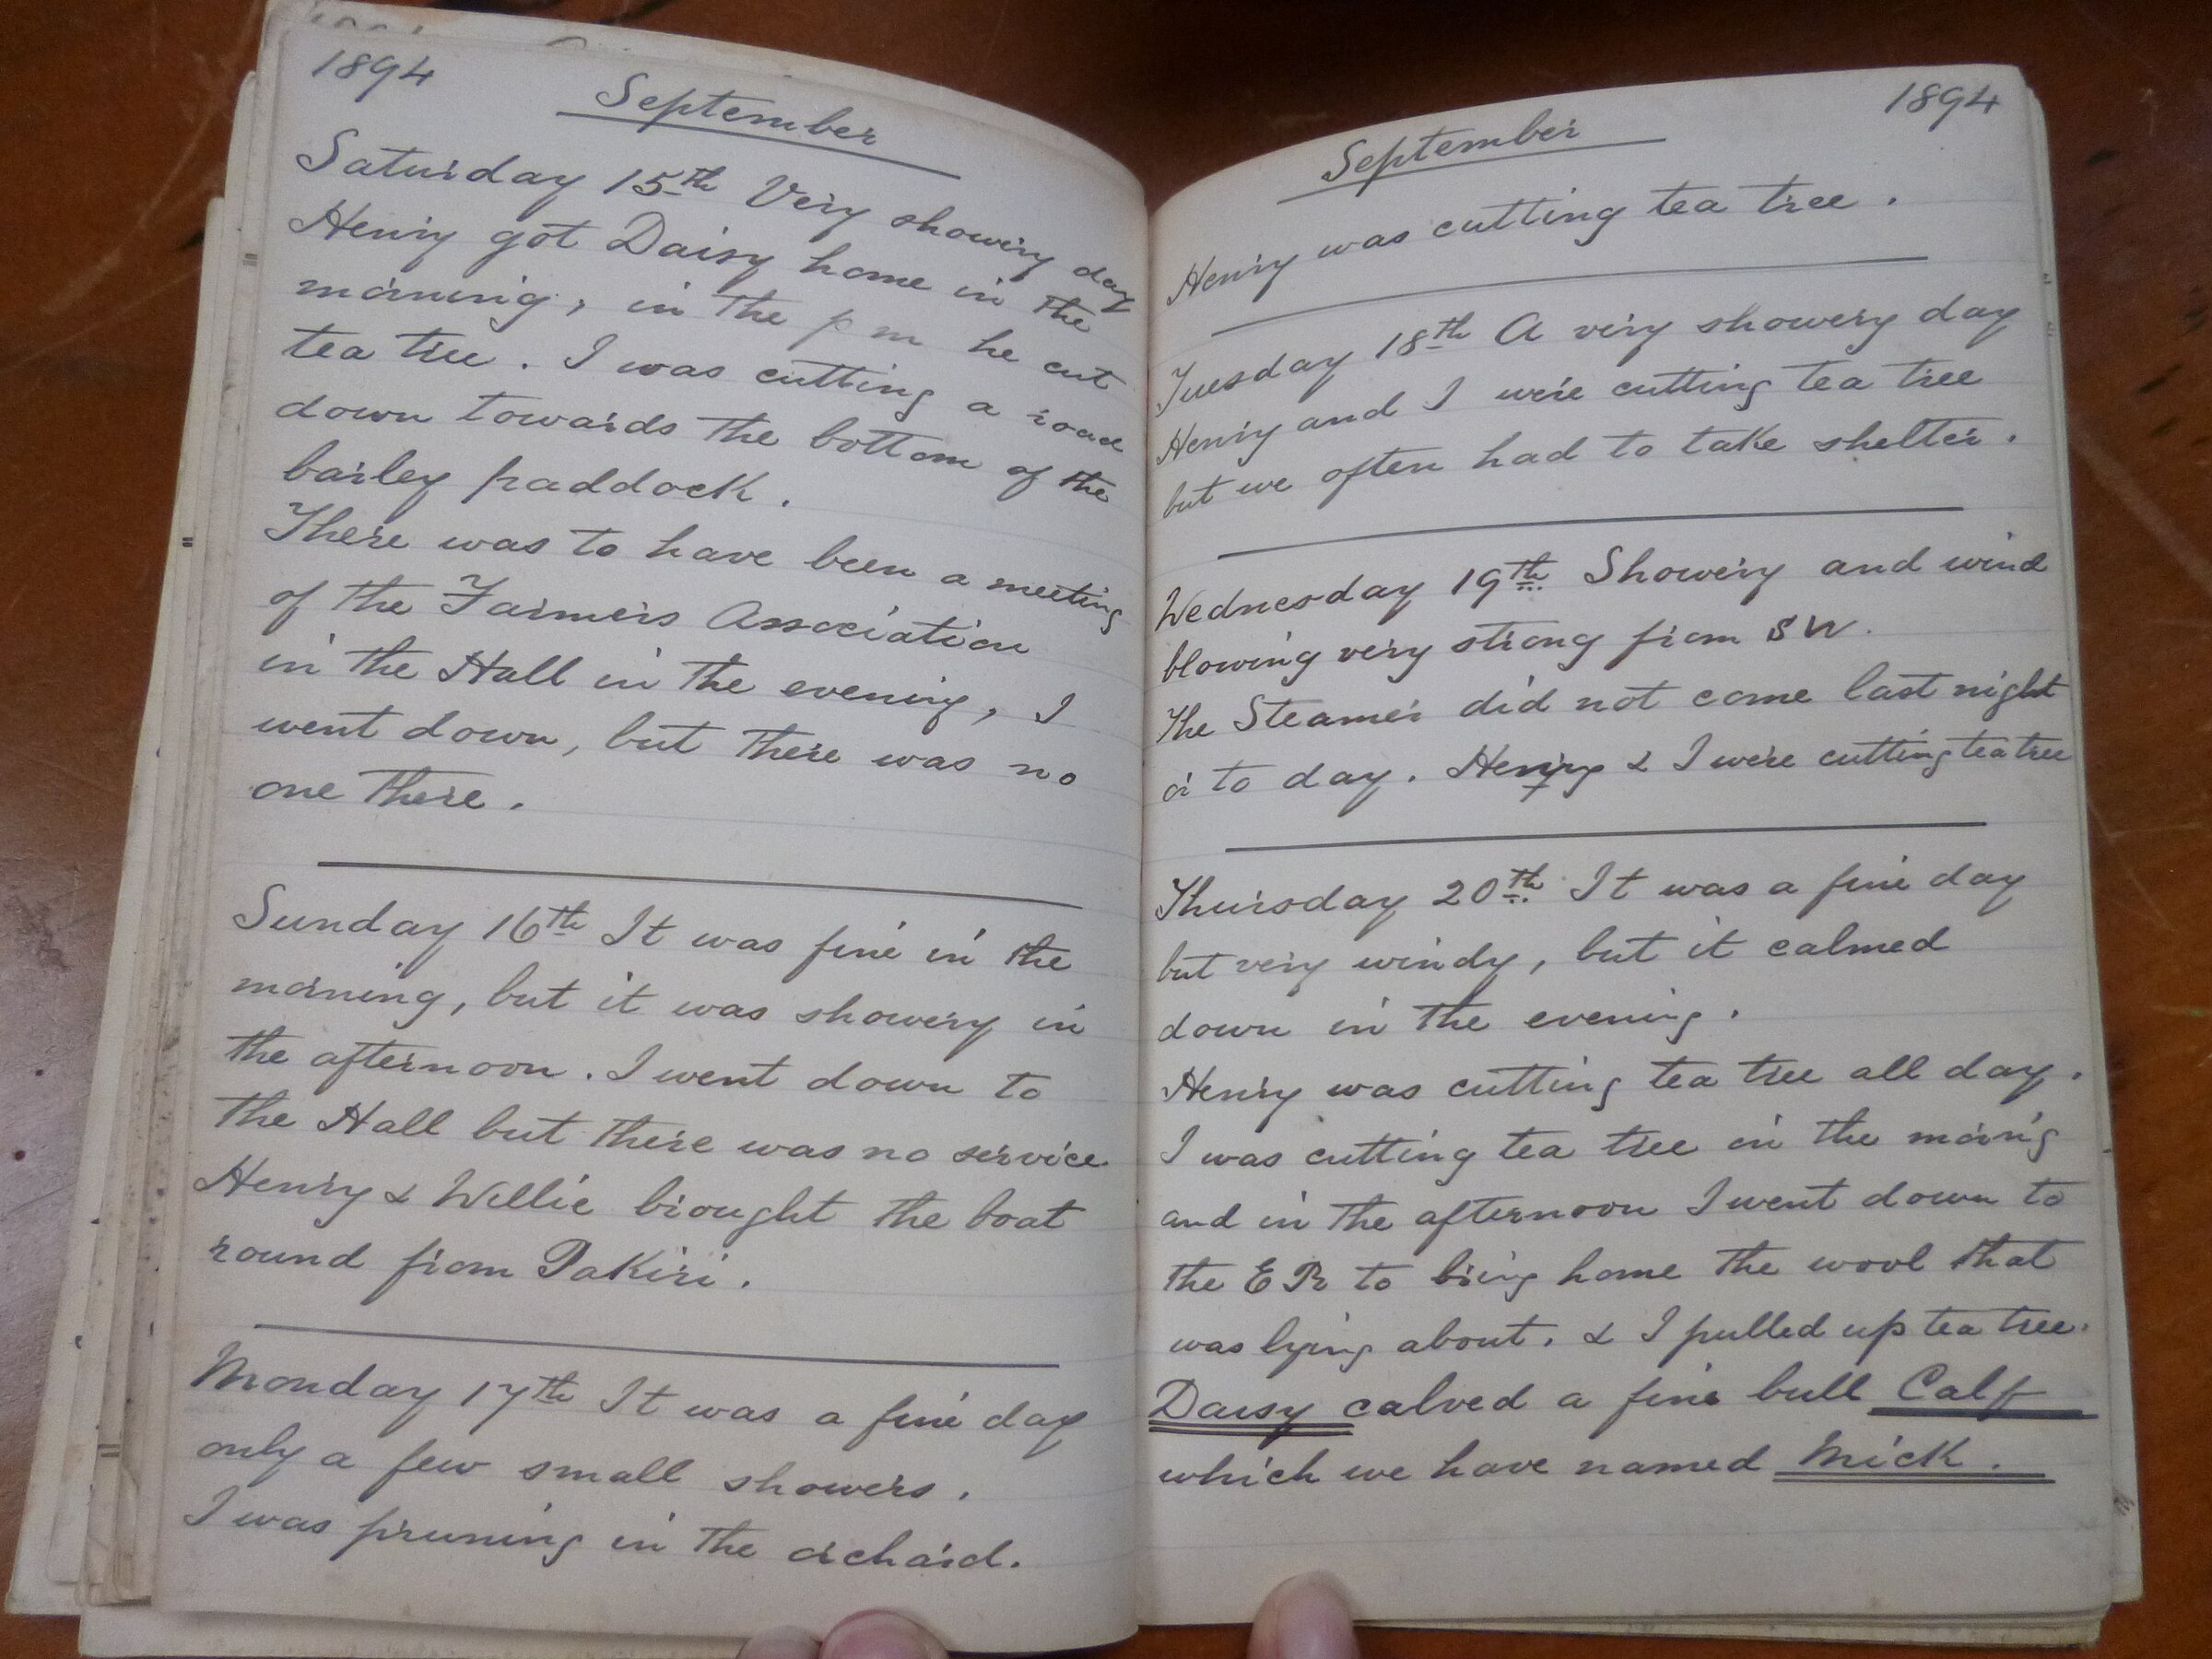 1894
September
Saturday 15th Very showery day
Henry got Daisy home in the
morning, in the pm he cut
tea tree. I was cutting a road
down towards the bottom of the
barley paddock.
There was to have been a meeting
of the Farmers Association
in the Hall in the evening, I
went down, but there was no
one there.
Sunday 16th It was fine in the
morning, but it was showery in
the afternoon. I went down to
the Hall but there was no service.
Henry & Willie brought the boat
round from Pakiri.
Monday 17th It was a fine day
only a few small showers.
I was pruning in the orchard.
1894
September
Henry was cutting tea tree.
Tuesday 18th A very showery day
Henry and I were cutting tea tree
but we often had to take shelter.
Wednesday 19th Showery and wind
blowing very strong from SW.
The Steamer did not come last night
or to day. Henry & I were cutting tea tree
Thursday 20th It was a fine day
but very windy, but it calmed
down in the evening.
Henry was cutting tea tree all day.
I was cutting tea tree in the morn'g
and in the afternoon I went down to
the ER to bring home the wool that
was lying about. & I pulled up tea tree.
Daisy calved a fine bull Calf
which we have named Mick.